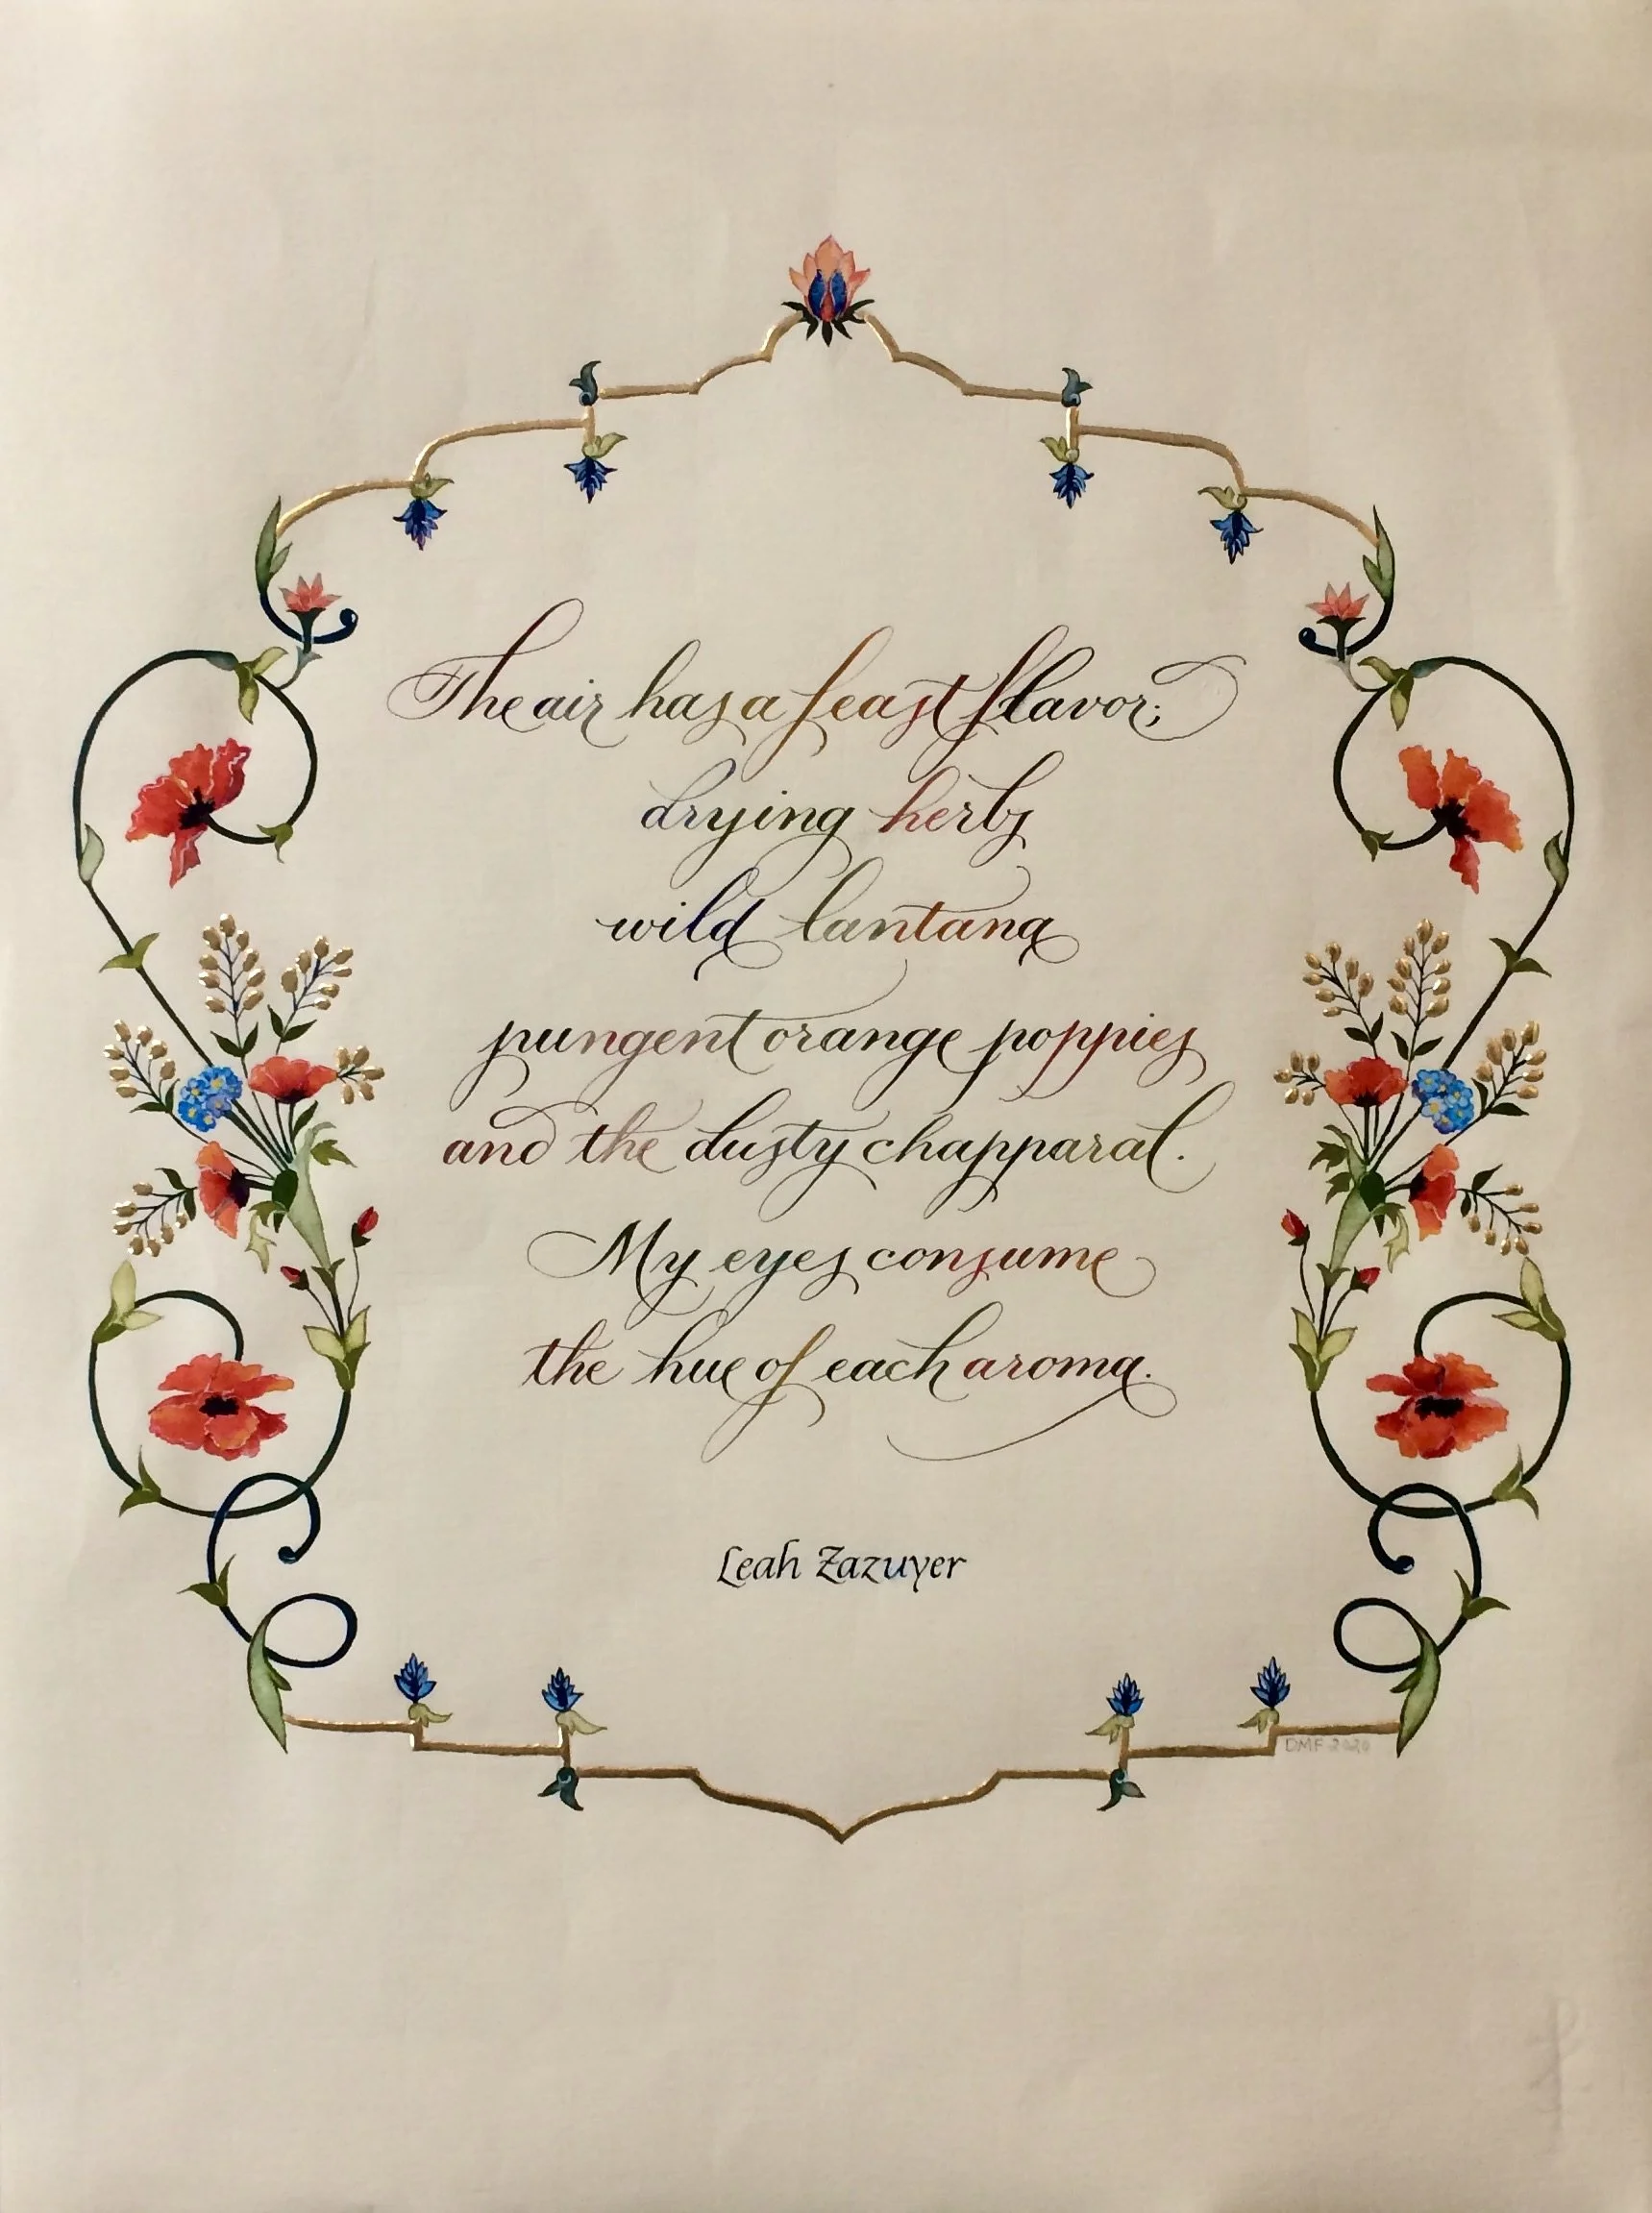 The air has a feast flavor;
drying herbs
wild lantana
pungent orange poppies
and the dusty chapparal.
My eyes consume
the hue of each aroma.
Leah Zazuyer
DMF 2020